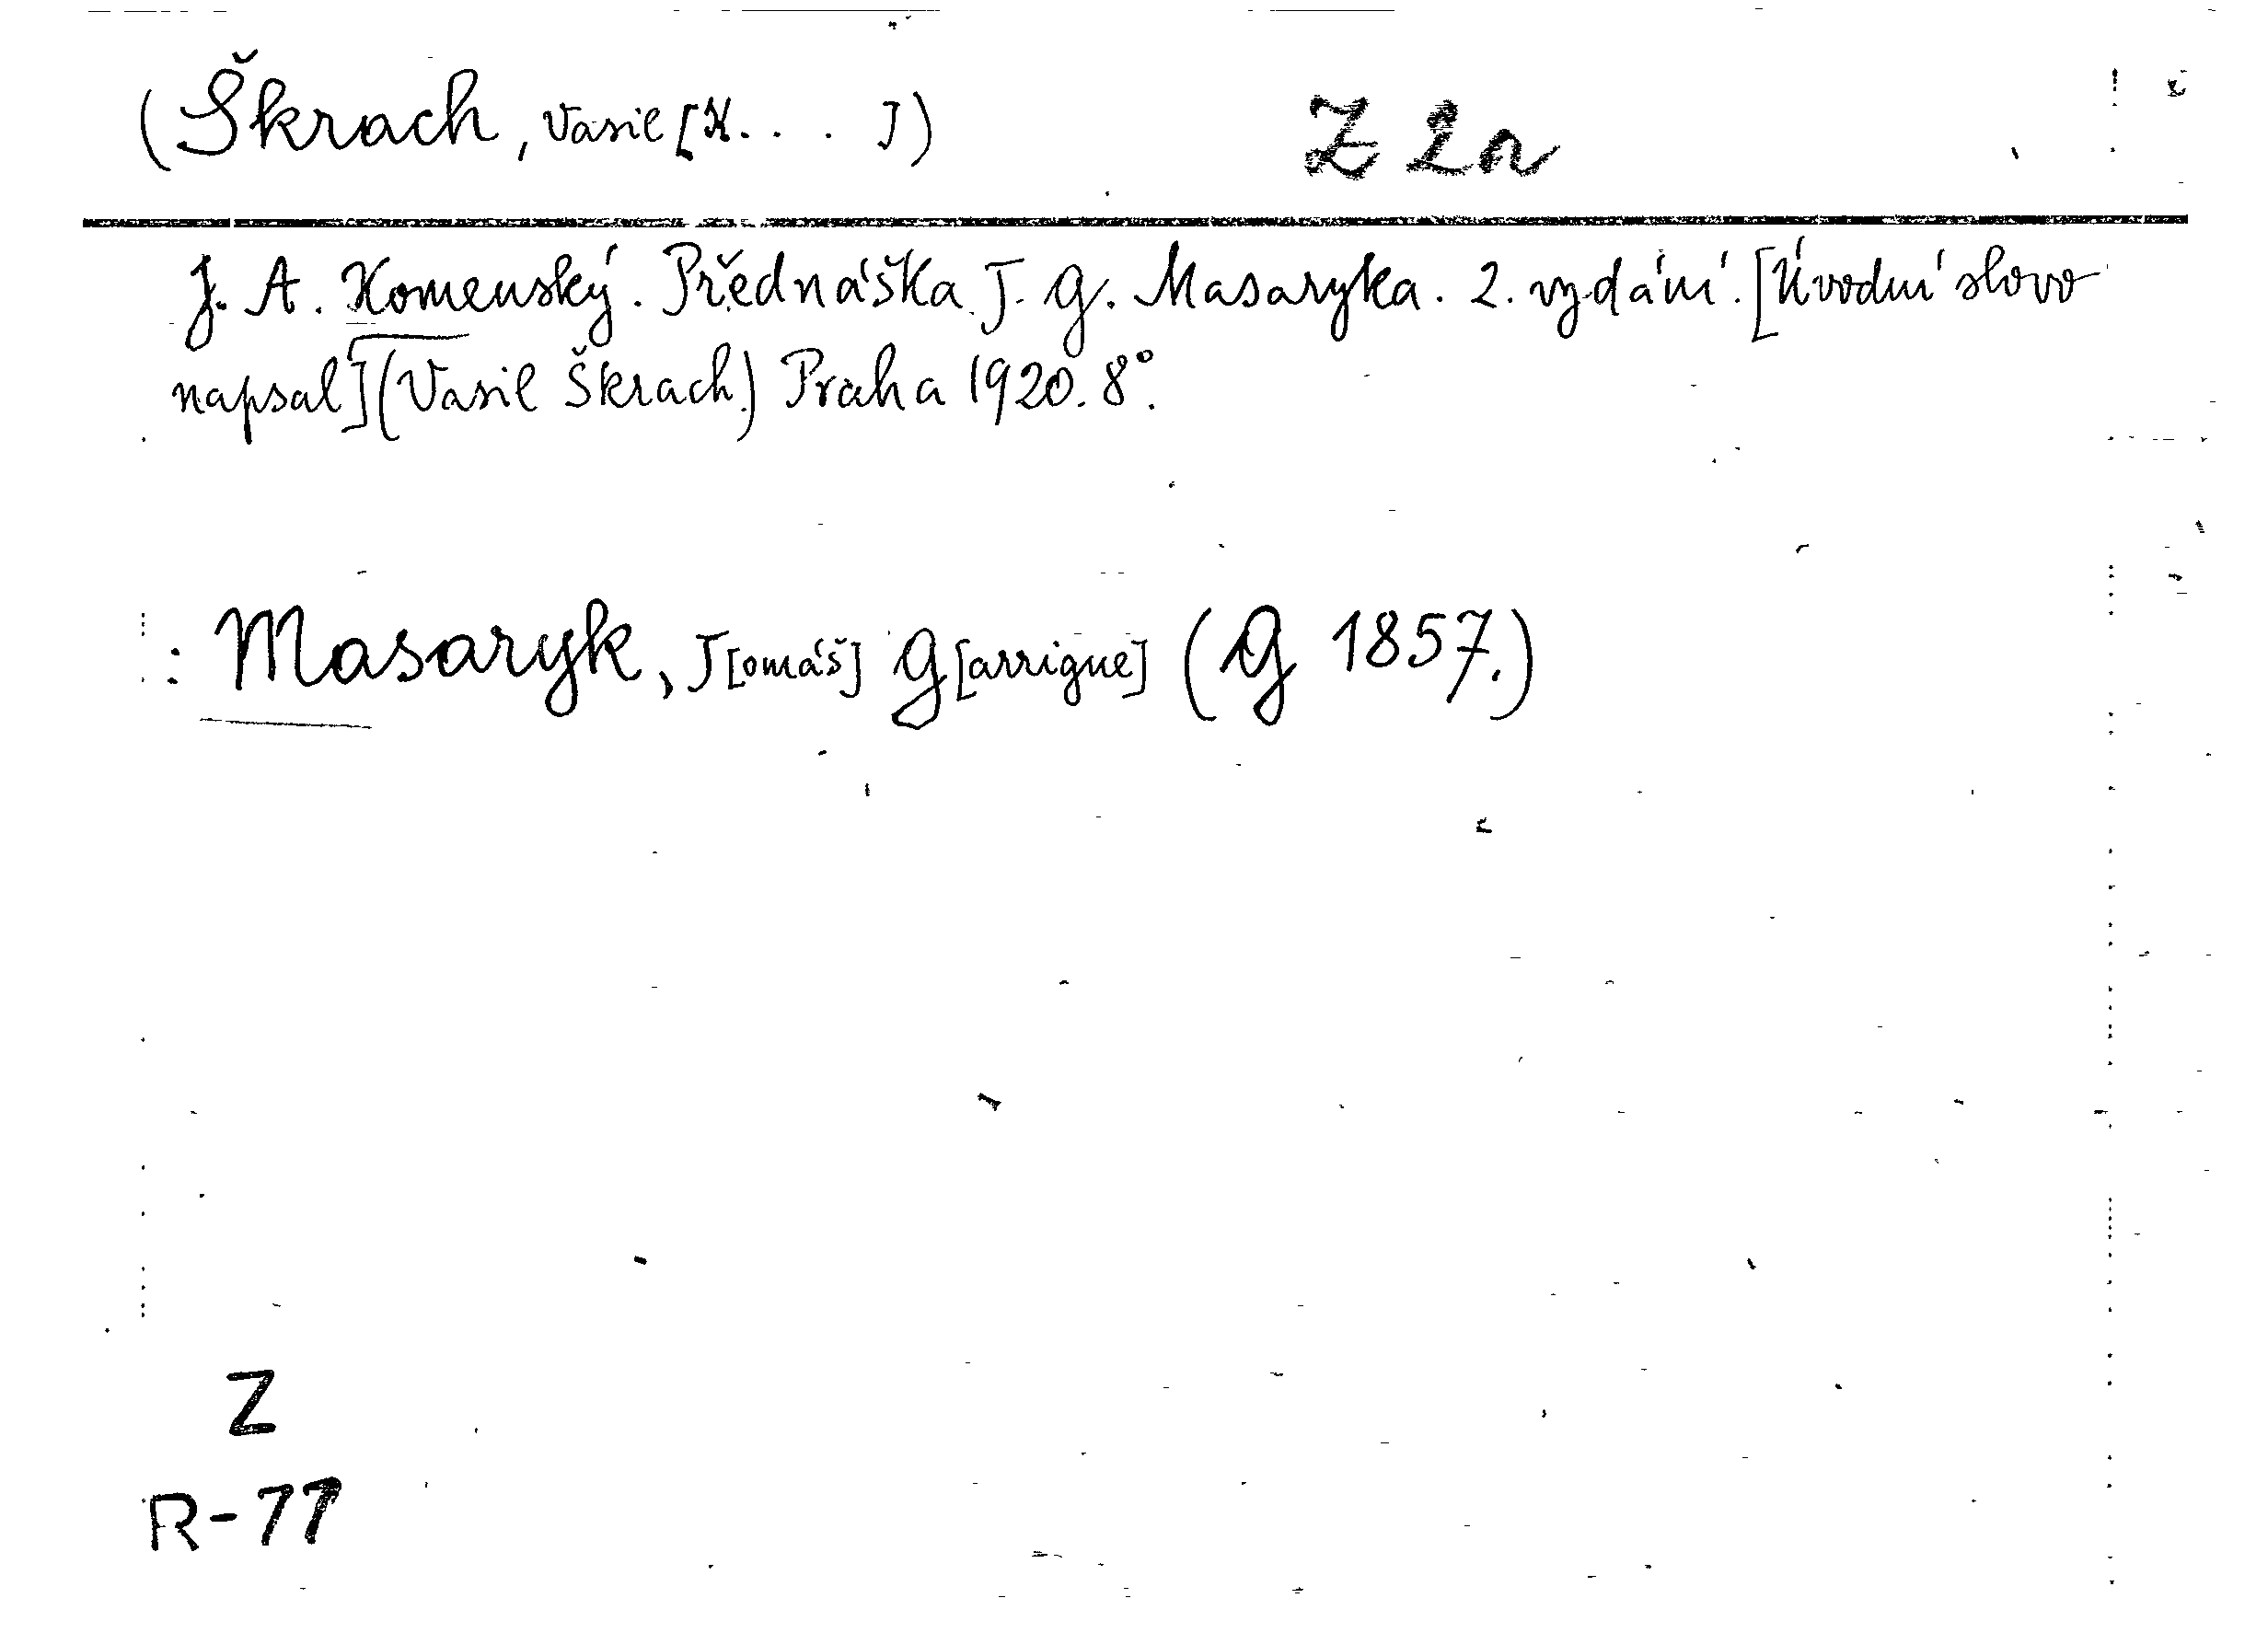 (Škrach, Vasil [K. . . ]) Z 2a
J. A. Komenský. Přednáška T. G. Masaryka. 2. vydání. [Úvodní slovo
napsal] (Vasil Škrach.) Praha 1920. 8°.
: Masaryk, T[omáš] G[arrigue] (G 1857.)
Z
R-77